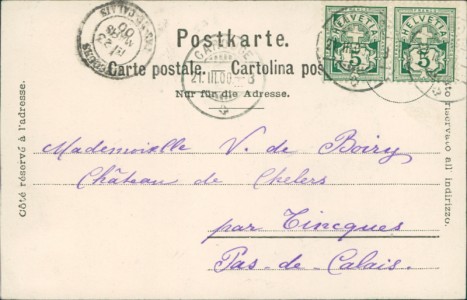 HELVETIA HELVETIA
5 5
Postkarte.
Carte postale. Cartolina pos
Nur für die Adresse.
21.III.00.
Côté réservé à l'adresse.
Mademoiselle V. de Boiry
Château de Chelers
par Tincques
Pas-de-Calais.
riservato all indirizzo.